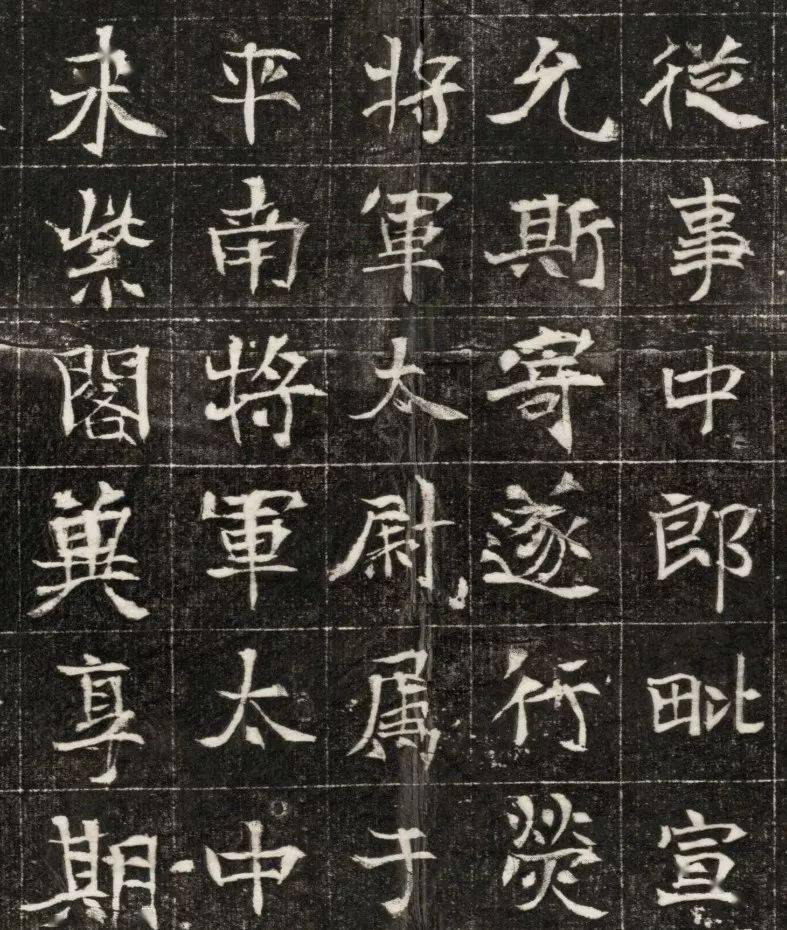 従事中郎毗宣
允斯寄遂行熒
将軍太尉属于
平南將軍太中
来紫閣冀享期